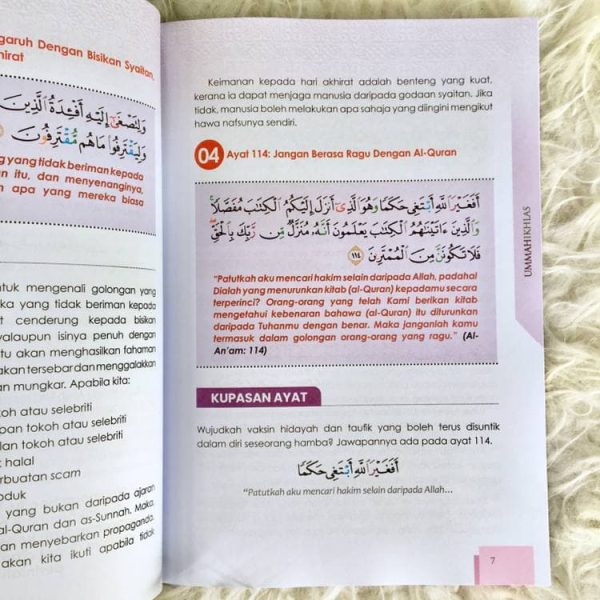 garuh Dengan Bisikan Syaitan,
hirat
وَلِتَصْغَىٰ إِلَيْهِ أَفْـِٔدَةُ الَّذِينَ
وَلِيَقْتَرِفُوا مَا هُم مُّقْتَرِفُونَ
g yang tidak beriman kepada
an itu, dan menyenanginya,
n apa yang mereka biasa
ntuk mengenali golongan yang
eka yang tidak beriman kepada
t cenderung kepada bisikan
walaupun isinya penuh dengan
tu akan menghasilkan fahaman
akan tersebar dan menggalakkan
an mungkar. Apabila kita:
koh atau selebriti
pan tokoh atau selebriti
lan tokoh atau selebriti
k halal
rbuatan scam
oduk
yang bukan daripada ajaran
al-Quran dan as-Sunnah. Maka,
an menyebarkan propaganda.
akan kita ikuti apabila tidak
Keimanan kepada hari akhirat adalah benteng yang kuat,
kerana ia dapat menjaga manusia daripada godaan syaitan. Jika
tidak, manusia boleh melakukan apa sahaja yang diingini mengikut
hawa nafsunya sendiri.
04 Ayat 114: Jangan Berasa Ragu Dengan Al-Quran
أَفَغَيْرَ اللَّهِ أَبْتَغِي حَكَمًا وَهُوَ الَّذِي أَنزَلَ إِلَيْكُمُ الْكِتَٰبَ مُفَصَّلًا
وَالَّذِينَ ءَاتَيْنَٰهُمُ الْكِتَٰبَ يَعْلَمُونَ أَنَّهُ مُنَزَّلٌ مِّن رَّبِّكَ بِالْحَقِّ
فَلَا تَكُونَنَّ مِنَ الْمُمْتَرِينَ ١١٤
"Patutkah aku mencari hakim selain daripada Allah, padahal
Dialah yang menurunkan kitab (al-Quran) kepadamu secara
terperinci? Orang-orang yang telah Kami berikan kitab
mengetahui kebenaran bahawa (al-Quran) itu diturunkan
daripada Tuhanmu dengan benar. Maka janganlah kamu
termasuk dalam golongan orang-orang yang ragu." (Al-
An'am: 114)
KUPASAN AYAT
Wujudkah vaksin hidayah dan taufik yang boleh terus disuntik
dalam diri seseorang hamba? Jawapannya ada pada ayat 114.
أَفَغَيْرَ اللَّهِ أَبْتَغِي حَكَمًا
"Patutkah aku mencari hakim selain daripada Allah...
UMMAHIKHLAS
7